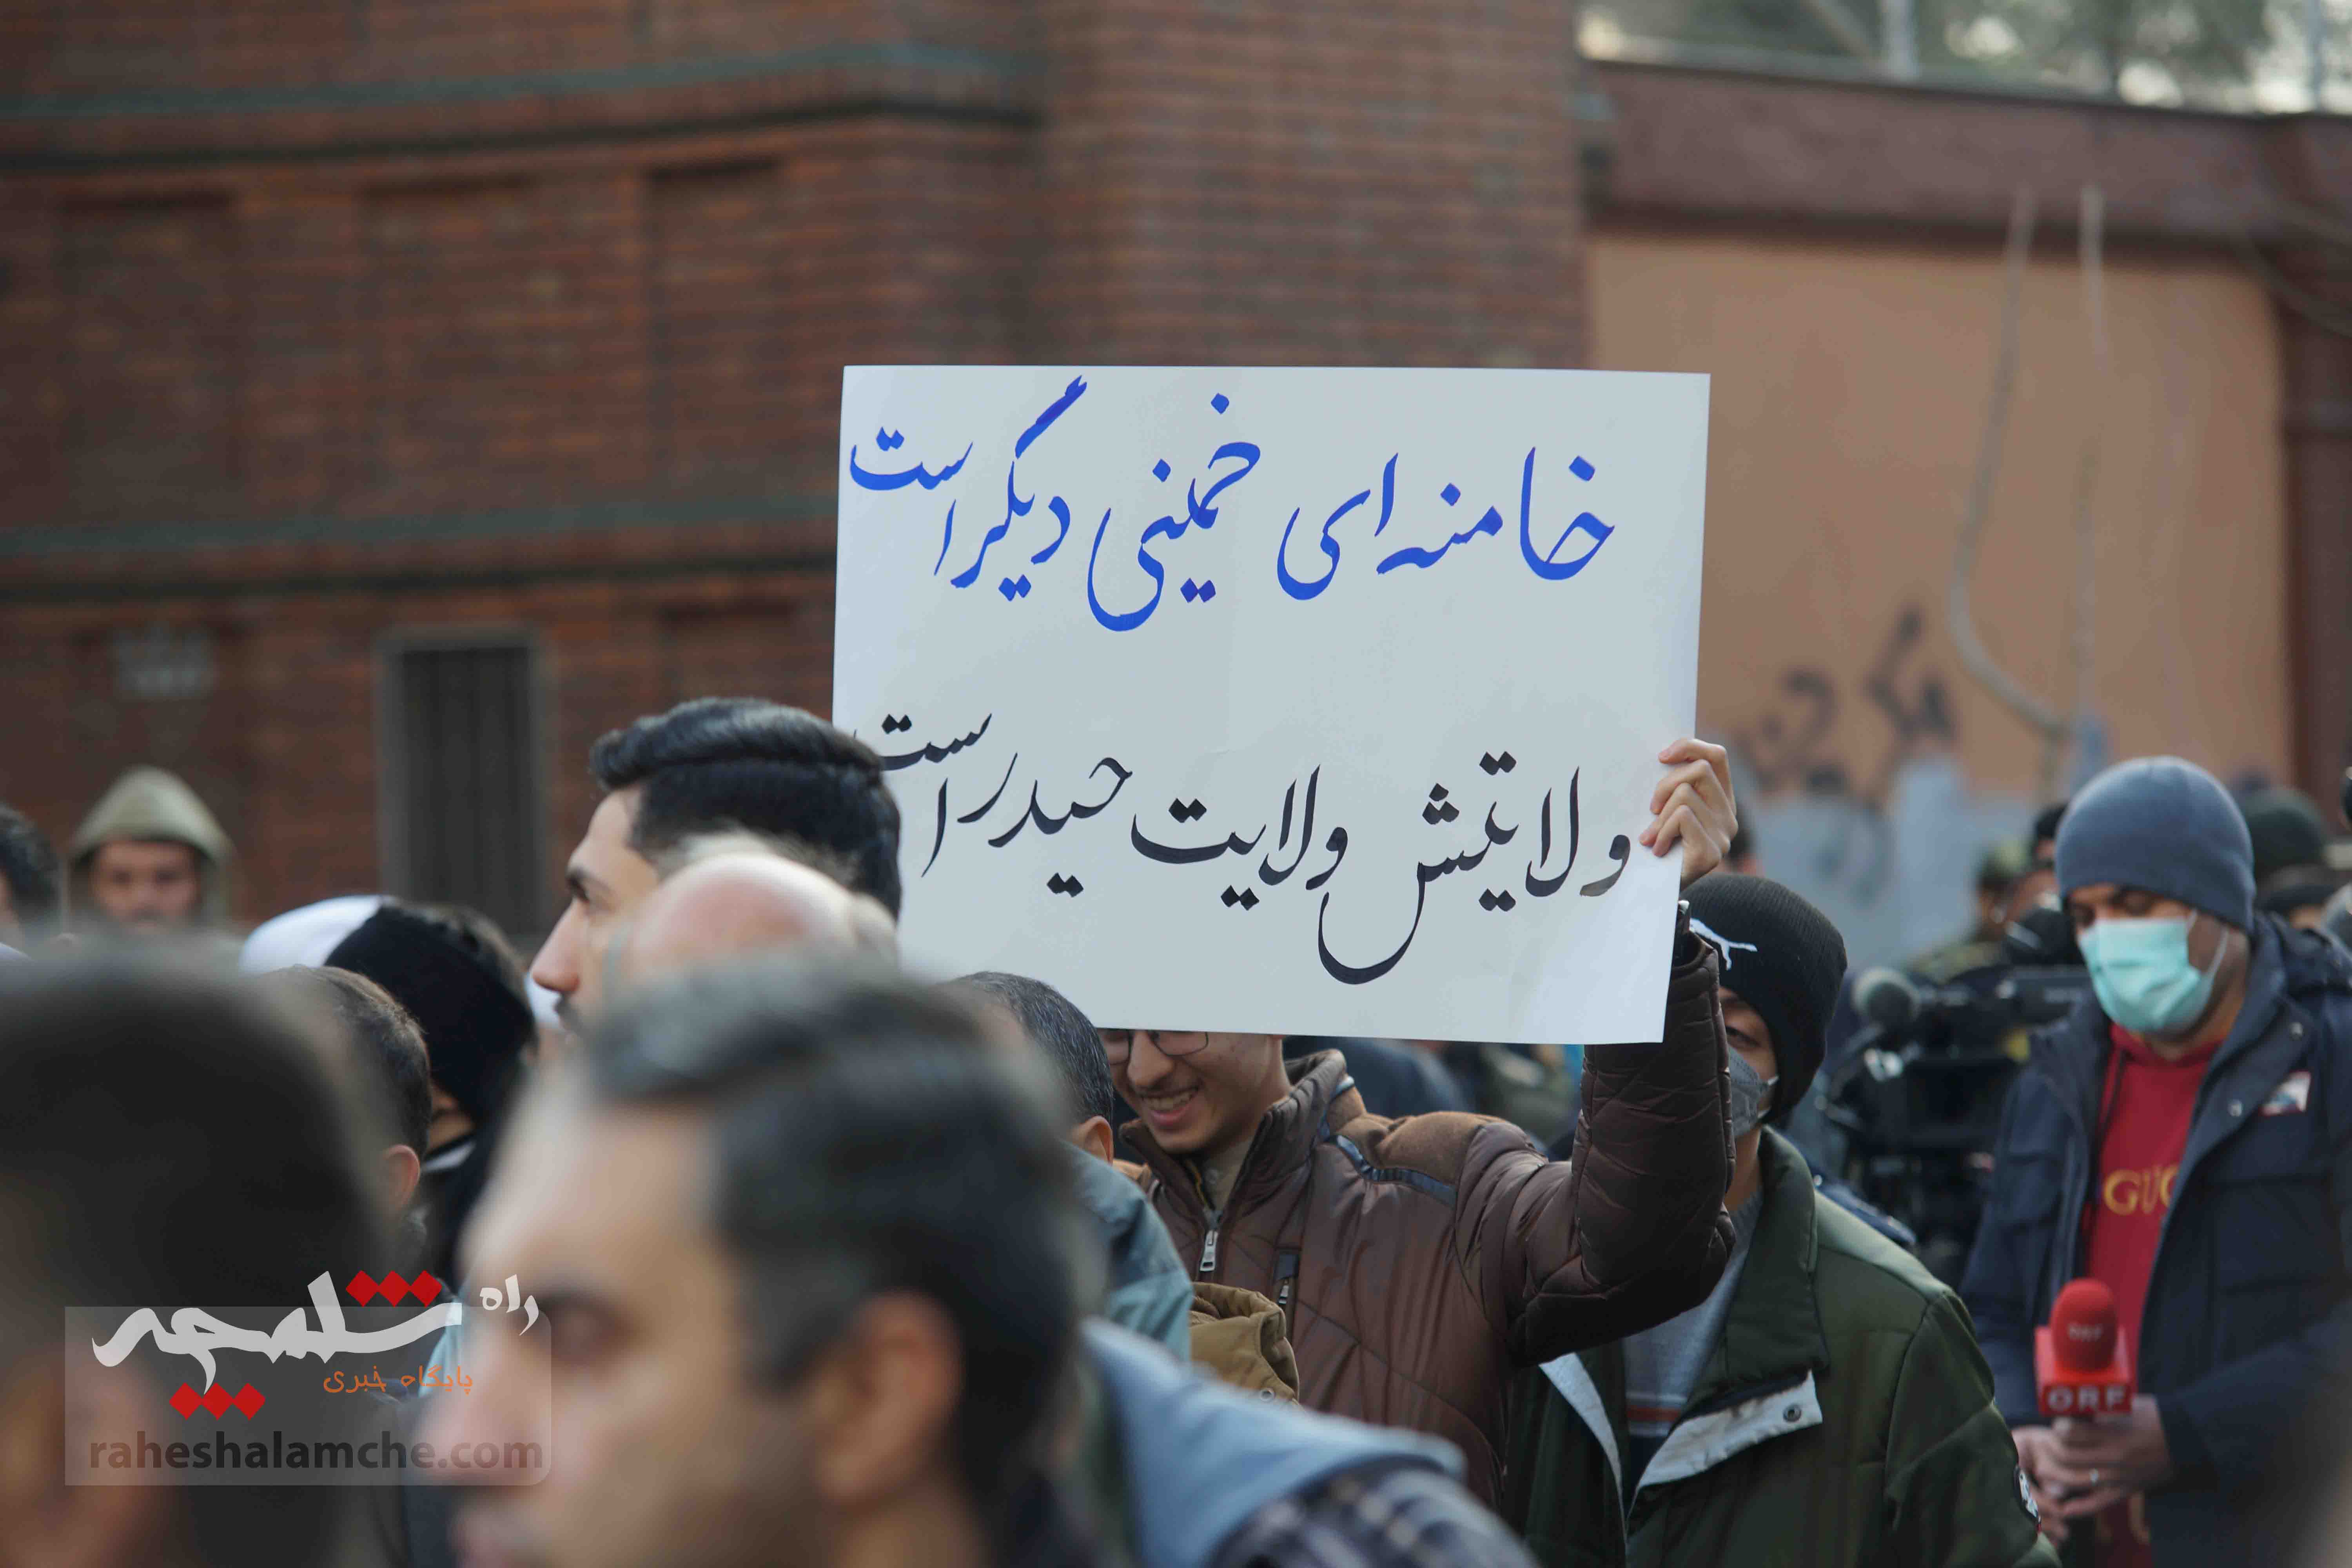 خامنه ای خمینی دیگر است
ولایتش ولایت حیدر است
GUC
ORF
راه شلمچه
پایگاه خبری
raheshalamche.com